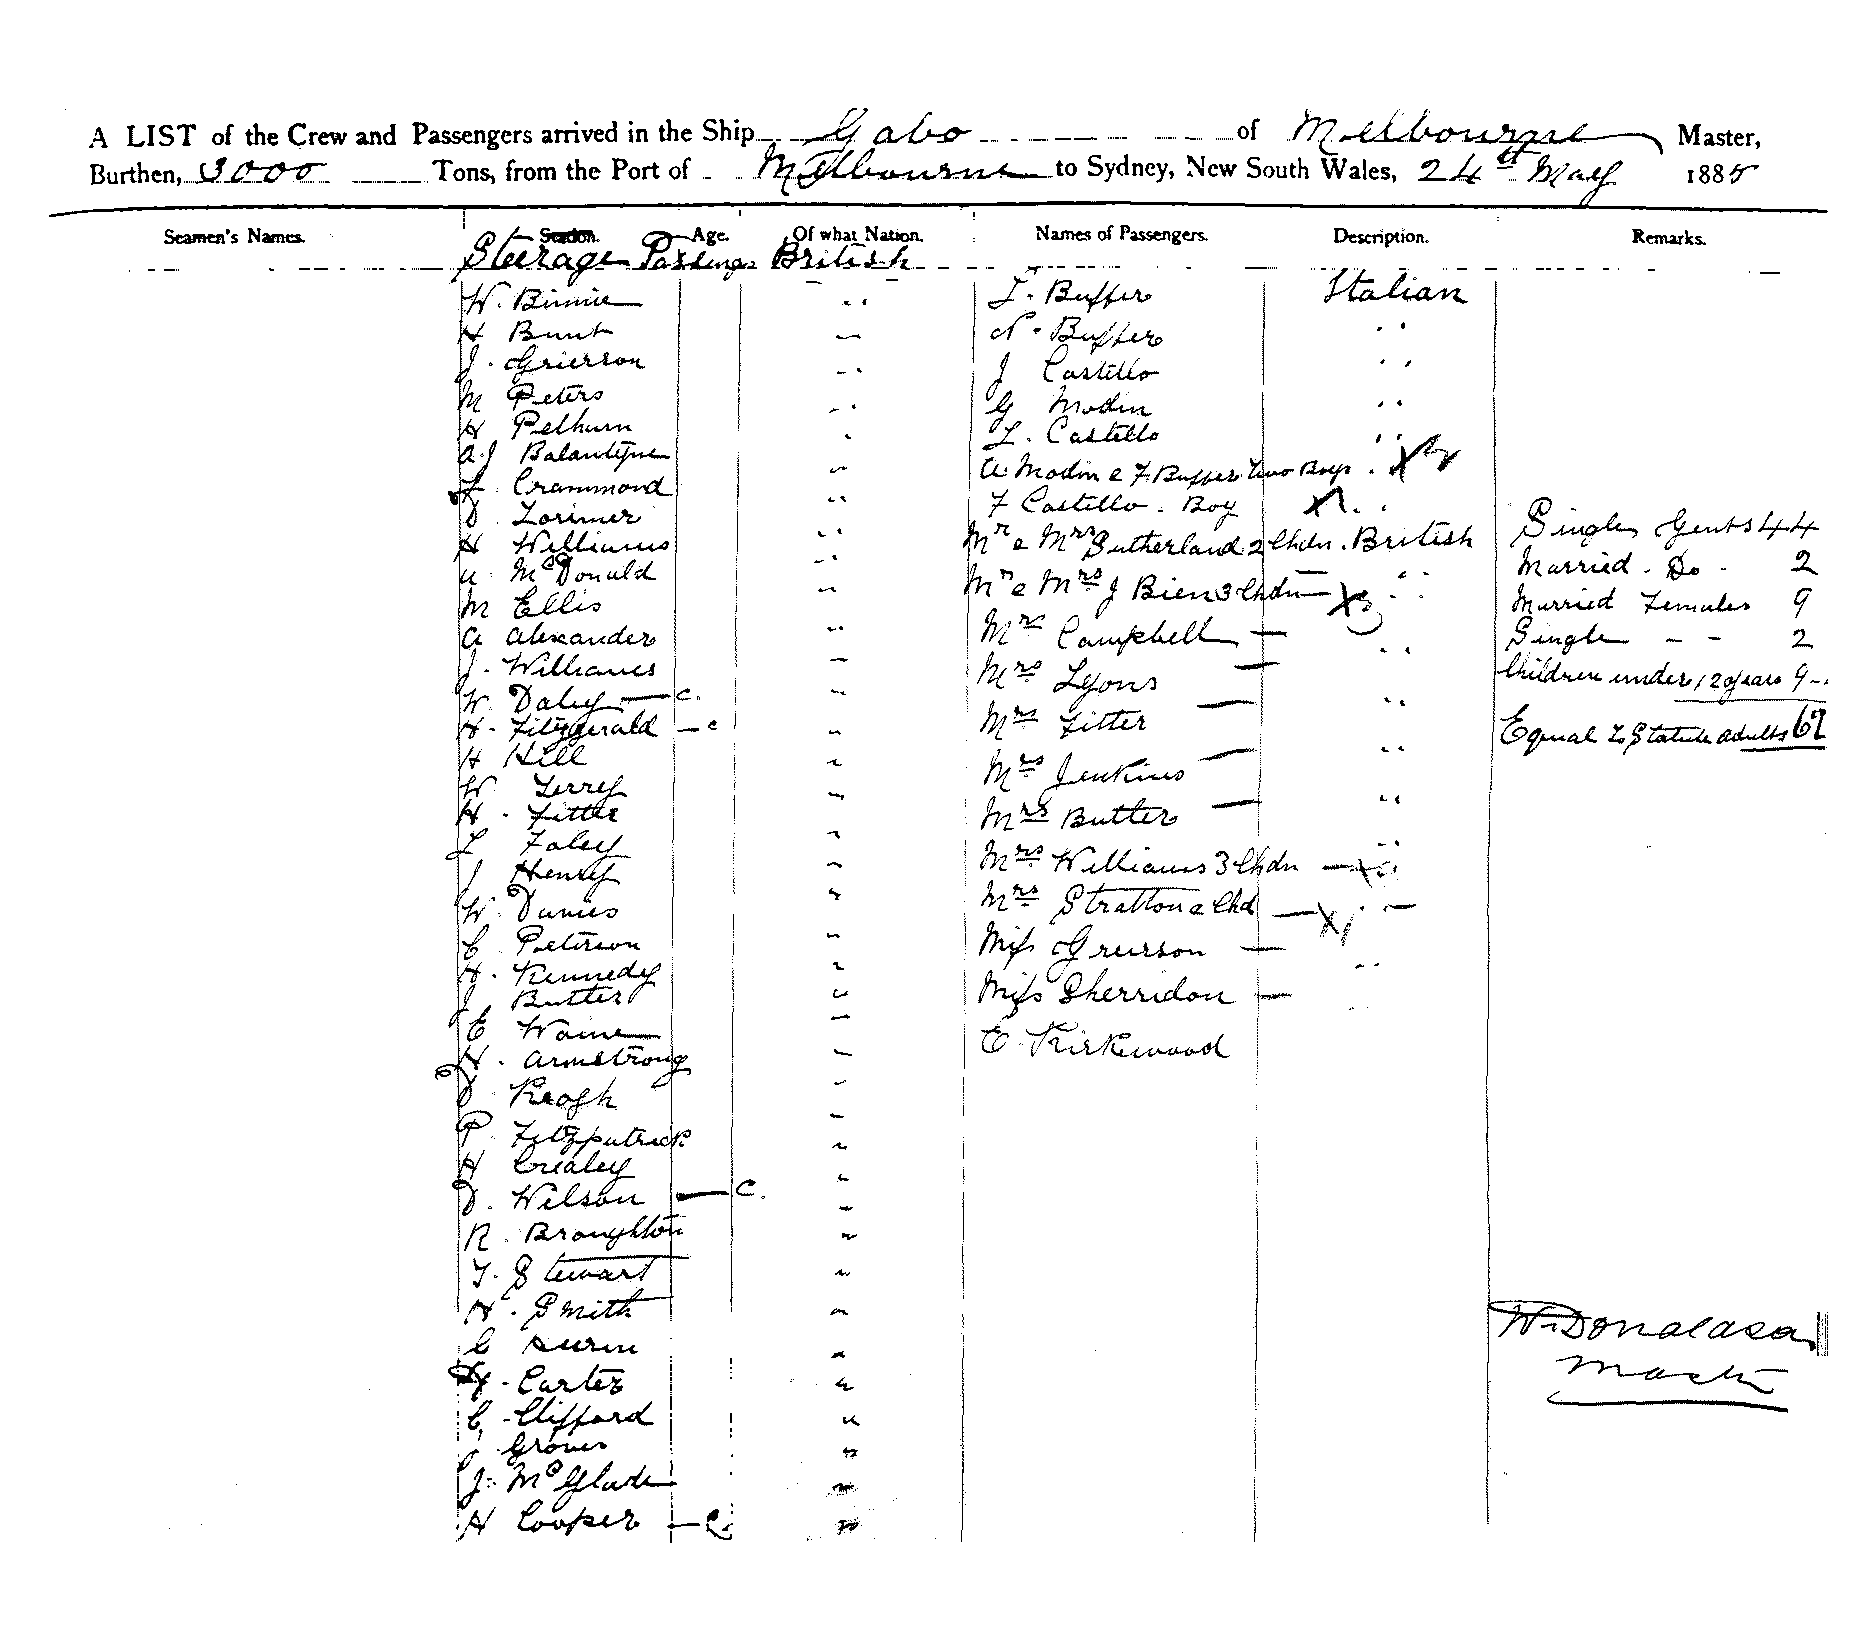 A LIST of the Crew and Passengers arrived in the Ship Gabo of Melbourne Master,
Burthen, 3000 Tons, from the Port of Melbourne to Sydney, New South Wales, 24th May 1885
Seamen's Names. Station. Age. Of what Nation. Names of Passengers. Description. Remarks.
Steerage Passengr British
W. Binnie
H Bunt
J. Grierson
M Peters
H Pelhum
A.J Balantyne
F. Crammond
D. Lorimer
H Williams
A. McDonald
M Ellis
A Alexander
J. Williams
W. Daley — c.
H. Fitzgerald — c
H Hill
W Terry
H. Fitter
J Foley
J Henry
W. Davies
C Peterson
H. Kennedy
J. Butter
E Waine
H. Armstrong
D Keogh
P. Fitzpatrick
H Crealey
D. Wilson — C.
R. Broughton
T. Stewart
H. Smith
C
H. Carter
C. Clifford
J Groves
J. McGlade
H Cooper — C.
L. Buffer Italian
N. Buffer
J Castillo
G Modin
L. Castello
A Modin & F Buffer Two Boys
F Castello. Boy
Mr & Mrs Sutherland 2 Chdn. British
Mr & Mrs J Bien 3 Chdn — X3
Mrs Campbell —
Mrs Lyons —
Mrs Fitter —
Mrs Jenkins —
Mrs Butter —
Mrs Williams 3 Chdn —
Mrs Stratton & Chd — X1
Miss Greirson —
Miss Sherridon —
E. Kirkwood
Single Gents 44
Married. Do. 2
Married Females 9
Single - - 2
Children under 12 years 9
Equal to Statute adults
W. Donaldson
Master